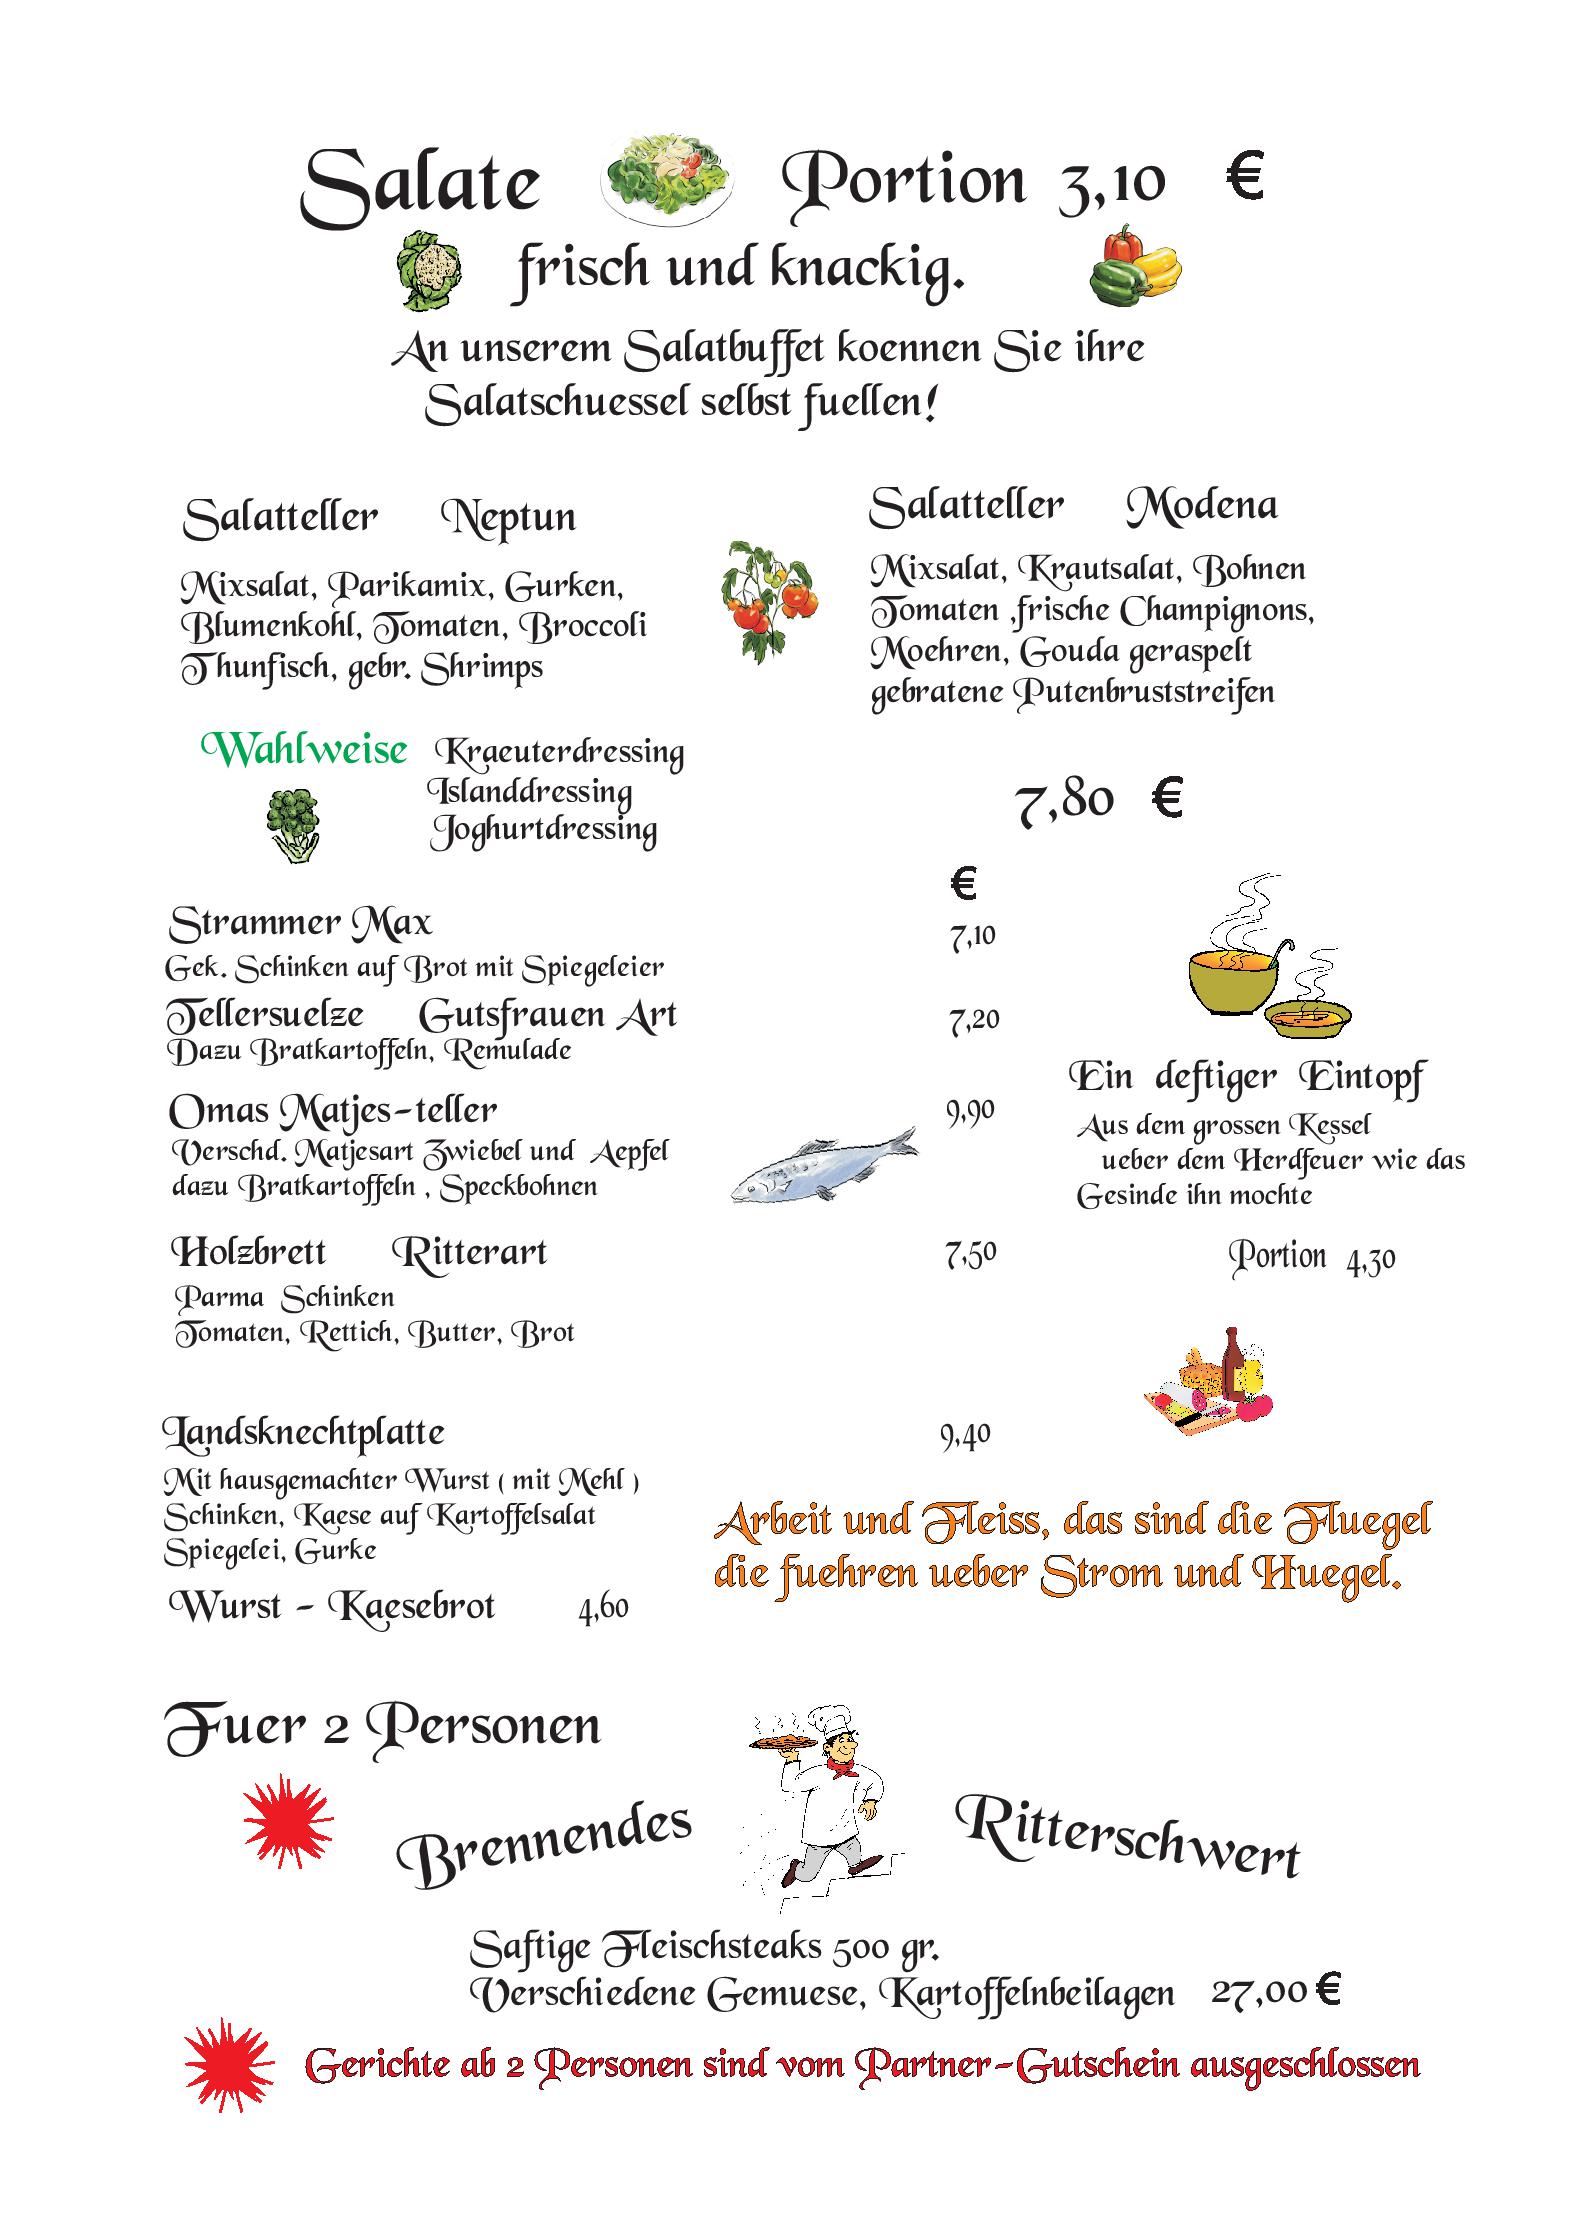 Salate Portion 3,10 €
frisch und knackig.
An unserem Salatbuffet koennen Sie ihre
Salatschuessel selbst fuellen!
Salatteller Neptun
Mixsalat, Parikamix, Gurken,
Blumenkohl, Tomaten, Broccoli
Thunfisch, gebr. Shrimps
Salatteller Modena
Mixsalat, Krautsalat, Bohnen
Tomaten ,frische Champignons,
Moehren, Gouda geraspelt
gebratene Putenbruststreifen
Wahlweise Kraeuterdressing
Islanddressing
Joghurtdressing
7,80 €
€
Strammer Max 7,10
Gek. Schinken auf Brot mit Spiegeleier
Tellersuelze Gutsfrauen Art 7,20
Dazu Bratkartoffeln, Remulade
Omas Matjes-teller 9,90
Verschd. Matjesart Zwiebel und Aepfel
dazu Bratkartoffeln , Speckbohnen
Holzbrett Ritterart 7,50
Parma Schinken
Tomaten, Rettich, Butter, Brot
Ein deftiger Eintopf
Aus dem grossen Kessel
ueber dem Herdfeuer wie das
Gesinde ihn mochte
Portion 4,30
Landsknechtplatte 9,40
Mit hausgemachter Wurst ( mit Mehl )
Schinken, Kaese auf Kartoffelsalat
Spiegelei, Gurke
Wurst - Kaesebrot 4,60
Arbeit und Fleiss, das sind die Fluegel
die fuehren ueber Strom und Huegel.
Fuer 2 Personen
Brennendes Ritterschwert
Saftige Fleischsteaks 500 gr.
Verschiedene Gemuese, Kartoffelnbeilagen 27,00 €
Gerichte ab 2 Personen sind vom Partner-Gutschein ausgeschlossen